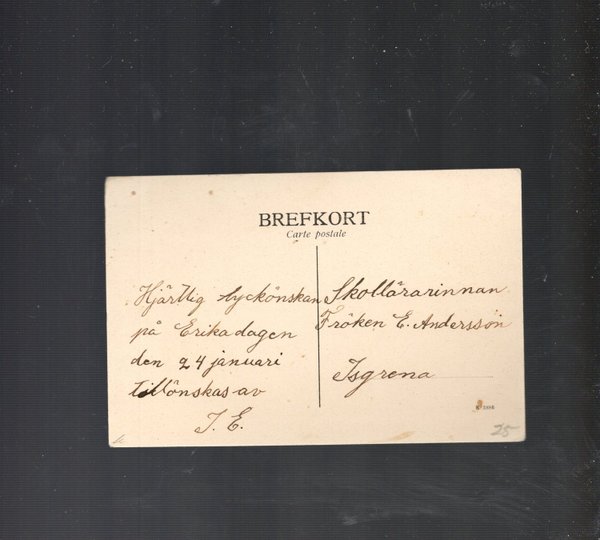 BREFKORT
Carte postale
Hjärtlig lyckönskan
på Erikadagen
den 24 januari
tillönskas av
J. E.
Skollärarinnan
Fröken E. Andersson
Isgrena
25